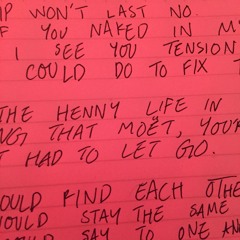 WON'T LAST NO
YOU NAKED IN
I SEE YOU TENSION
COULD DO TO FIX
THE HENNY LIFE IN
THAT MOËT, YOU'R
HAD TO LET GO.
OULD FIND EACH OTHE
WOULD STAY THE SAME
SAY TO ONE AN